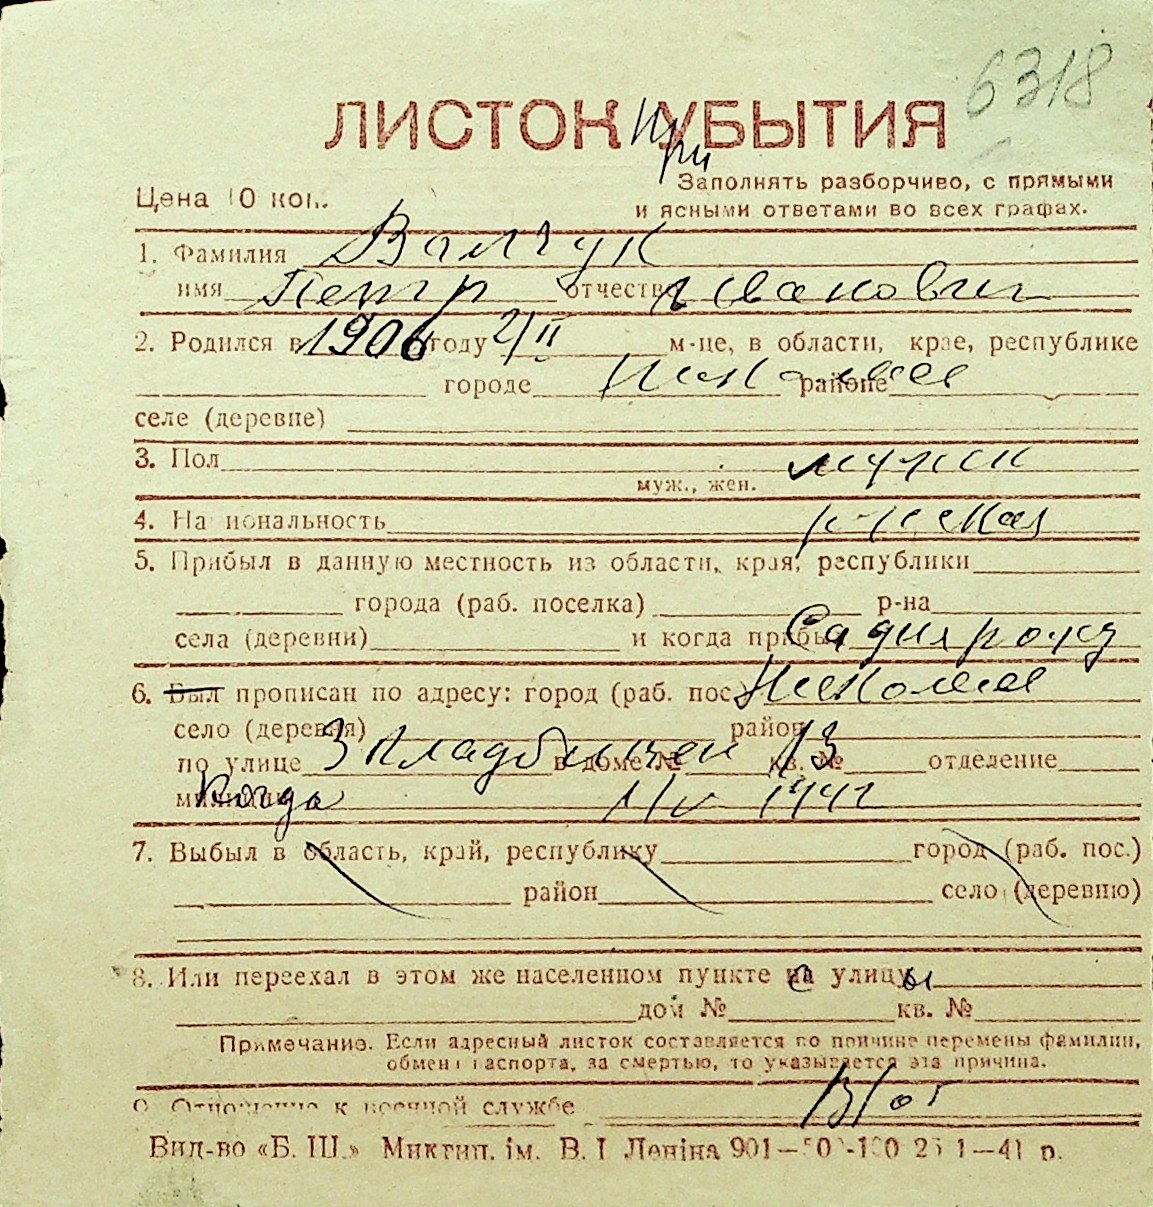 6318
ЛИСТОК УБЫТИЯ
При
Цена 10 коп.
Заполнять разборчиво, с прямыми
и ясными ответами во всех графах.
1. Фамилия Валчук
имя Петр отчество Иванович
2. Родился в 1906 году 2/II м-це, в области, крае, республике
городе Николаев районе
селе (деревне)
3. Пол мужск
муж., жен.
4. Национальность русская
5. Прибыл в данную местность из области, края, республики
города (раб. поселка) р-на
села (деревни) и когда прибыл
6. Был прописан по адресу: город (раб. пос.) Николаев
село (деревня) район
по улице 3 Кладбищен в доме № 13 кв. № отделение
милиции Когда 1/IV 1942
7. Выбыл в область, край, республику город (раб. пос.)
район село (деревню)
8. Или переехал в этом же населенном пункте с улицы
дом № кв. №
Примечание. Если адресный листок составляется по причине перемены фамилии,
обмена паспорта, за смертью, то указывается эта причина.
9. Отношение к военной службе
Вид-во «Б. Ш.» Миктип. ім. В. І Леніна 901—50 -41 р.